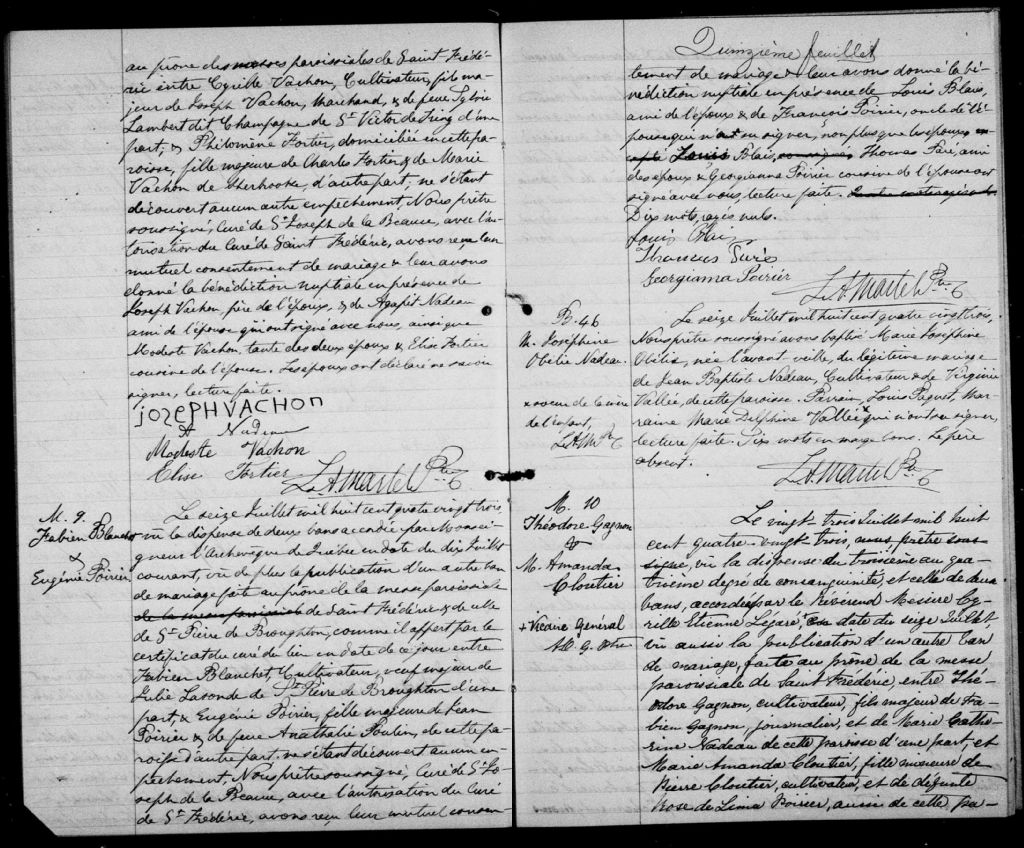 au prône des messes paroissiales de Saint Frédé-
ric entre Cyrille Vachon, Cultivateur, fils ma-
jeur de Joseph Vachon, Marchand, & de feue Sylvie
Lambert dit Champagne de St Victor de Tring d'une
part; & Philomène Fortier, domiciliée en cette pa-
roisse, fille majeure de Charles Fortier & de Marie
Vachon de Sherbrooke, d'autre part; ne s'étant
découvert aucun autre empêchement, Nous prêtre
soussigné, Curé de St Joseph de la Beauce, avec l'au-
torisation du Curé de Saint Frédéric, avons reçu leur
mutuel consentement de mariage & leur avons
donné la bénédiction nuptiale en présence de
Joseph Vachon, père de l'époux, & de Agapit Nadeau
ami de l'épouse qui ont signé avec nous, ainsi que
Modeste Vachon, tante des deux époux & Elise Fortier
cousine de l'épouse. Les époux ont déclaré ne savoir
signer, lecture faite.
JOZEPH VACHON
A Nadeau
Modeste Vachon
Elise Fortier L. A. Martel Ptre
M. 9.
Fabien Blanchet
&
Eugénie Poirier
Le seize Juillet mil huit cent quatre vingt trois,
vu la dispense de deux bans accordée par Monsei-
gneur l'Archevêque de Québec en date du dix Juillet
courant, vu de plus la publication d'un autre ban
de mariage faite au prône de la messe paroissiale
de la messe paroissiale de Saint Frédéric & de celle
de St Pierre de Broughton, comme il appert par le
certificat du curé de lieu en date de ce jour entre
Fabien Blanchet, Cultivateur, veuf majeur de
Julie Lasonde de St Pierre de Broughton d'une
part, & Eugénie Poirier, fille majeure de Jean
Poirier & de feue Anathalie Poulin, de cette pa-
roisse d'autre part, ne s'étant découvert aucun em-
pêchement, Nous prêtre soussigné, Curé de St Jo-
seph de la Beauce, avec l'autorisation du Curé
de St Frédéric, avons reçu leur mutuel consen-
Quinzième feuillet
tement de mariage & leur avons donné la bé-
nédiction nuptiale en présence de Louis Blais,
ami de l'époux & de François Poirier, oncle de l'é-
pouse qui n'a su signer, non plus que les époux,
Louis Blais, Thomas Paré, ami
des époux & Georgianna Poirier cousine de l'épouse ont
signé avec nous, lecture faite.
Dix mots rayés nuls.
Louis Blai
Thomas Paré
Georgianna Poirier
L. A. Martel Ptre
B. 46
M. Joséphine
Obélie Nadeau.
x soeur de la mère
de l'enfant,
L.A.M. Ptre
Le seize Juillet mil huit cent quatre vingt trois,
Nous prêtre soussigné avons baptisé Marie Joséphine
Obélie, née l'avant veille, du légitime mariage
de Jean Baptiste Nadeau, Cultivateur & de Virginie
Vallée, de cette paroisse. Parrain, Louis Paquet, Mar-
raine Marie Delphine Vallée x qui n'ont su signer,
lecture faite. Six mots en marge bons. Le père
absent.
L. A. Martel Ptre
M. 10
Théodore Gagnon
&
M. Amanda
Cloutier
+ Vicaire Général
Le vingt-trois Juillet mil huit
cent quatre-vingt-trois, nous prêtre sous-
signé, vu la dispense du troisième au qua-
trième degré de consanguinité et celle de deux
bans, accordée par le Révérend Messire Cy-
rille Etienne Légaré +, en date du seize Juillet
vu aussi la publication d'un autre ban
de mariage, faite au prône de la messe
paroissiale de Saint Frédéric, entre Thé-
odore Gagnon, cultivateur, fils majeur de Fa-
bien Gagnon, journalier, et de Marie Cathe-
rine Nadeau de cette paroisse d'une part, et
Marie Amanda Cloutier, fille mineure de
Pierre Cloutier, cultivateur, et de défunte
Rose de Lima Poirier, aussi de cette pa-